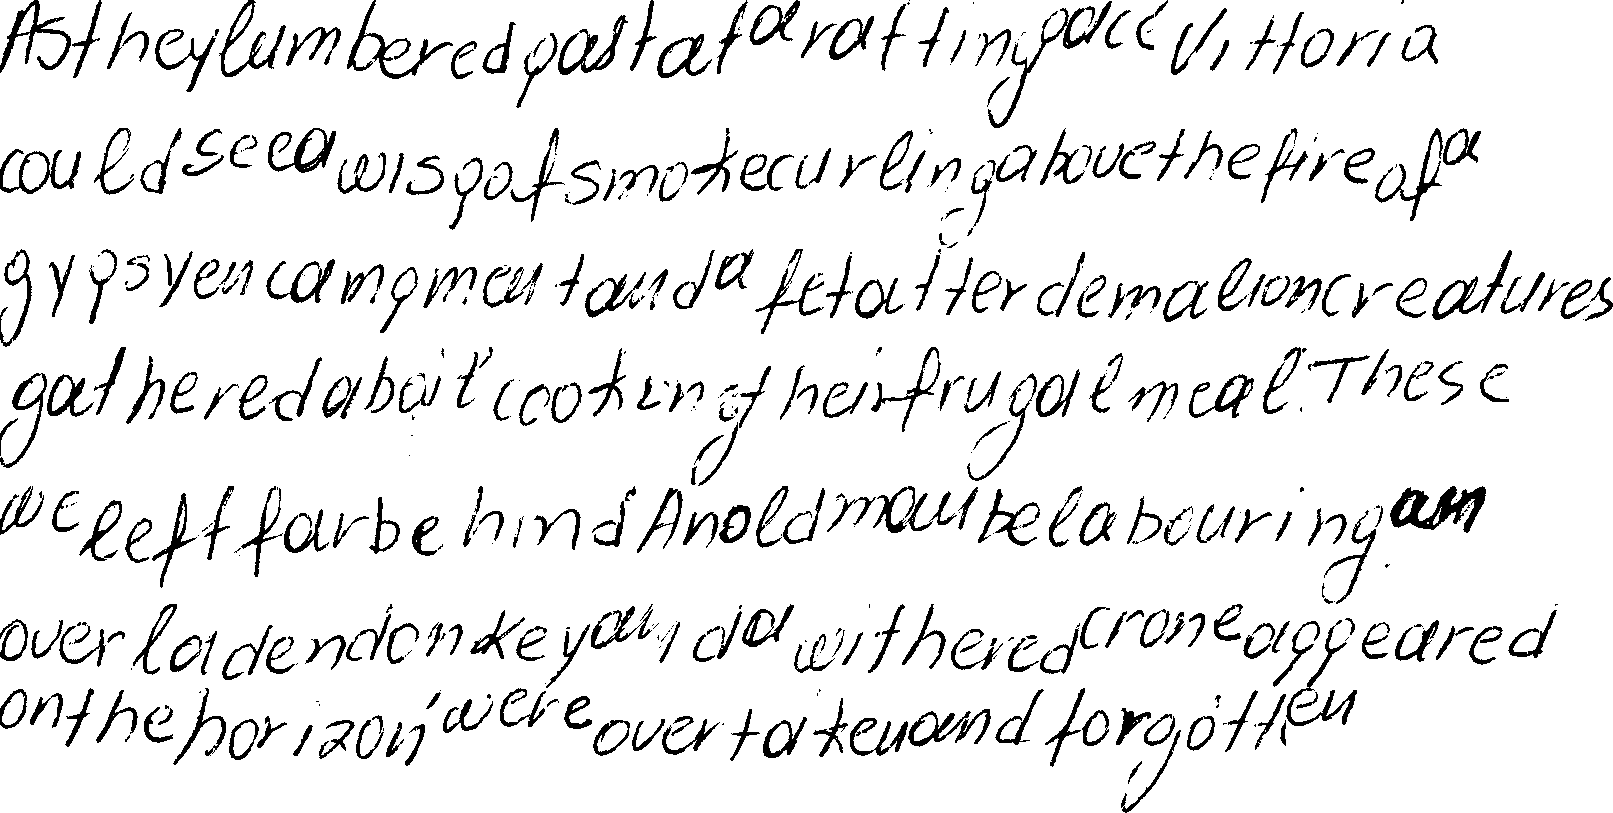 As they lumbered past at a ratting pace Vittoria
could see a wisp of smoke curling above the fire of a
gypsy encampment and a fe tatterdemalion creatures
gathered about cooking their frugal meal. These
we left far behind An old man belabouring an
overladen donkey and a withered crone appeared
on the horizon were overtaken and forgotten